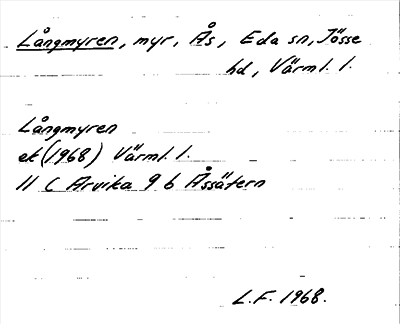 Långmyren, myr, Ås, Eda sn, Jösse
hd, Värml. l.
Långmyren
ek (1968) Värml. l.
11 C Arvika 9 b Åssätern
L.F. 1968.